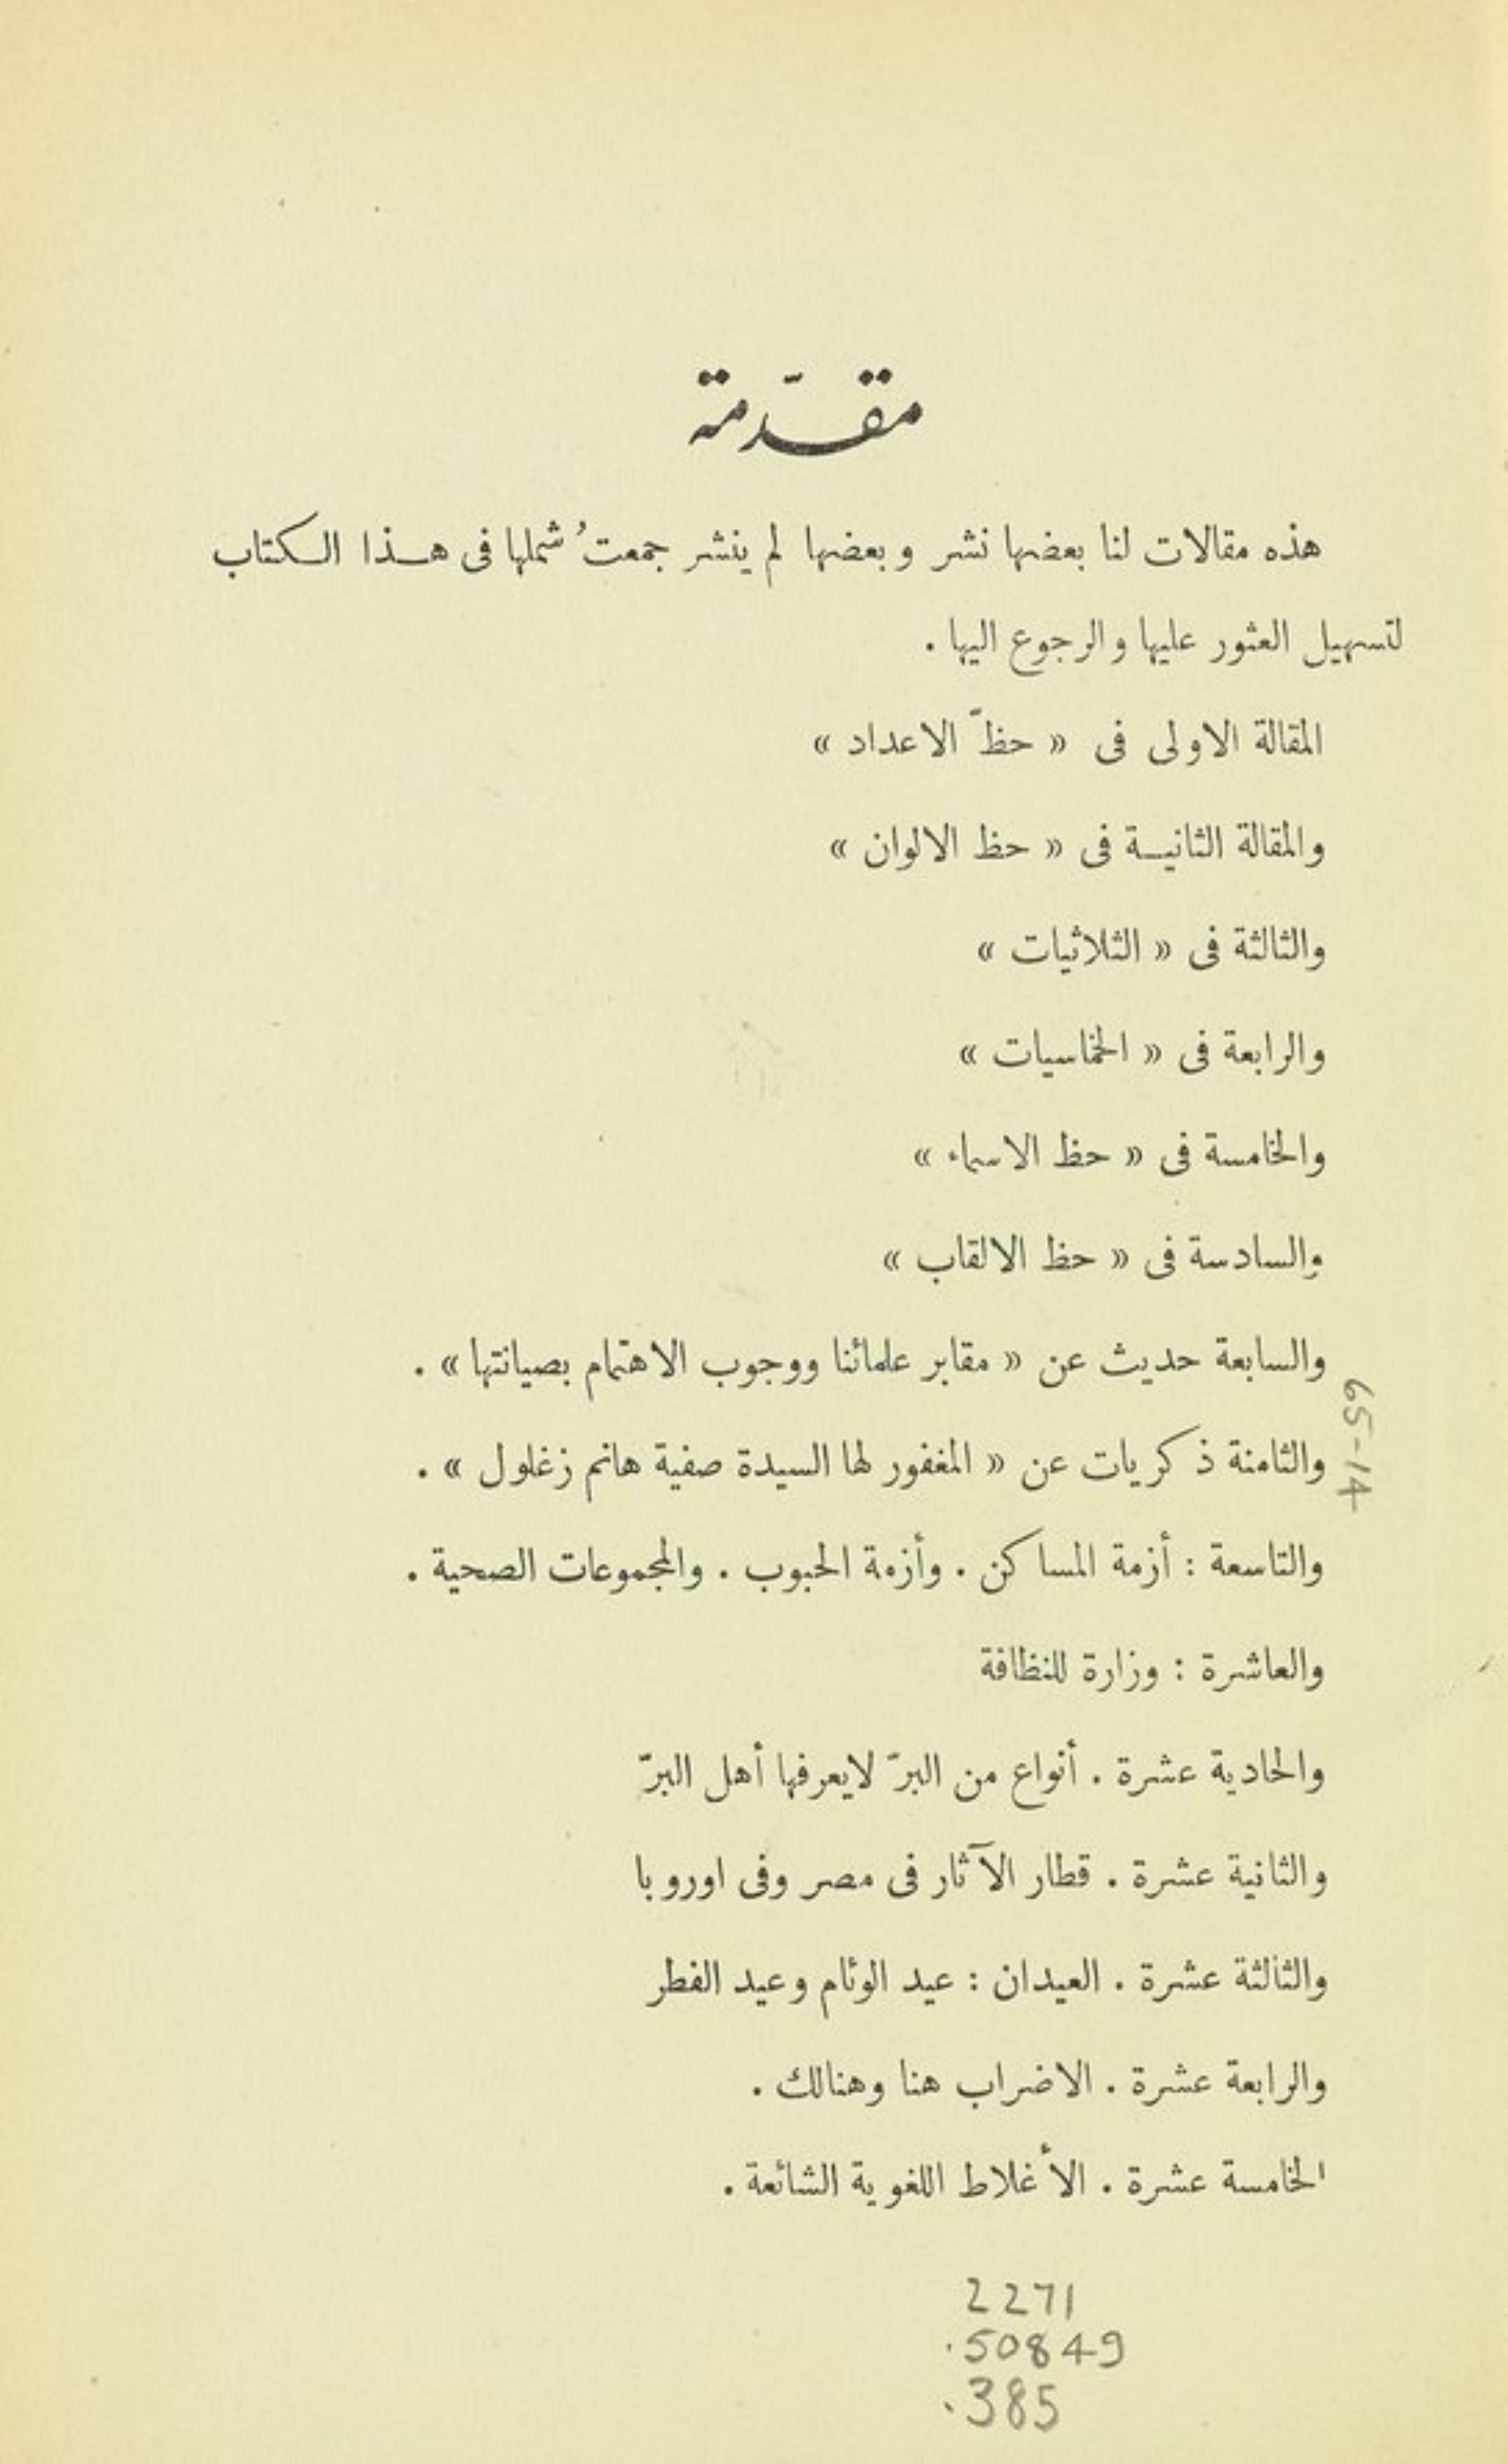 مقدّمة
هذه مقالات لنا بعضها نشر وبعضها لم ينشر جمعتُ شملها فى هـذا الـكتاب
لتسهيل العثور عليها والرجوع اليها .
المقالة الاولى فى « حظّ الاعداد »
والمقالة الثانيـة فى « حظ الالوان »
والثالثة فى « الثلاثيات »
والرابعة فى « الخماسيات »
والخامسة فى « حظ الاسماء »
والسادسة فى « حظ الالقاب »
والسابعة حديث عن « مقابر علمائنا ووجوب الاهتمام بصيانتها » .
والثامنة ذكريات عن « المغفور لها السيدة صفية هانم زغلول » .
والتاسعة : أزمة المساكن . وأزمة الحبوب . والمجموعات الصحية .
والعاشرة : وزارة للنظافة
والحادية عشرة . أنواع من البرّ لايعرفها أهل البرّ
والثانية عشرة . قطار الآثار فى مصر وفى اوروبا
والثالثة عشرة . العيدان : عيد الوئام وعيد الفطر
والرابعة عشرة . الاضراب هنا وهنالك .
الخامسة عشرة . الأغلاط اللغوية الشائعة .
65-14
2271
.50849
.385